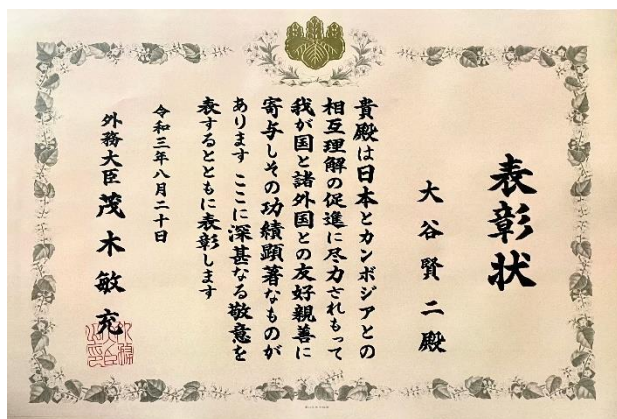 表彰状
大谷賢二殿
貴殿は日本とカンボジアとの
相互理解の促進に尽力されもって
我が国と諸外国との友好親善に
寄与しその功績顕著なものが
あります ここに深甚なる敬意を
表するとともに表彰します
令和三年八月二十日
外務大臣 茂木敏充